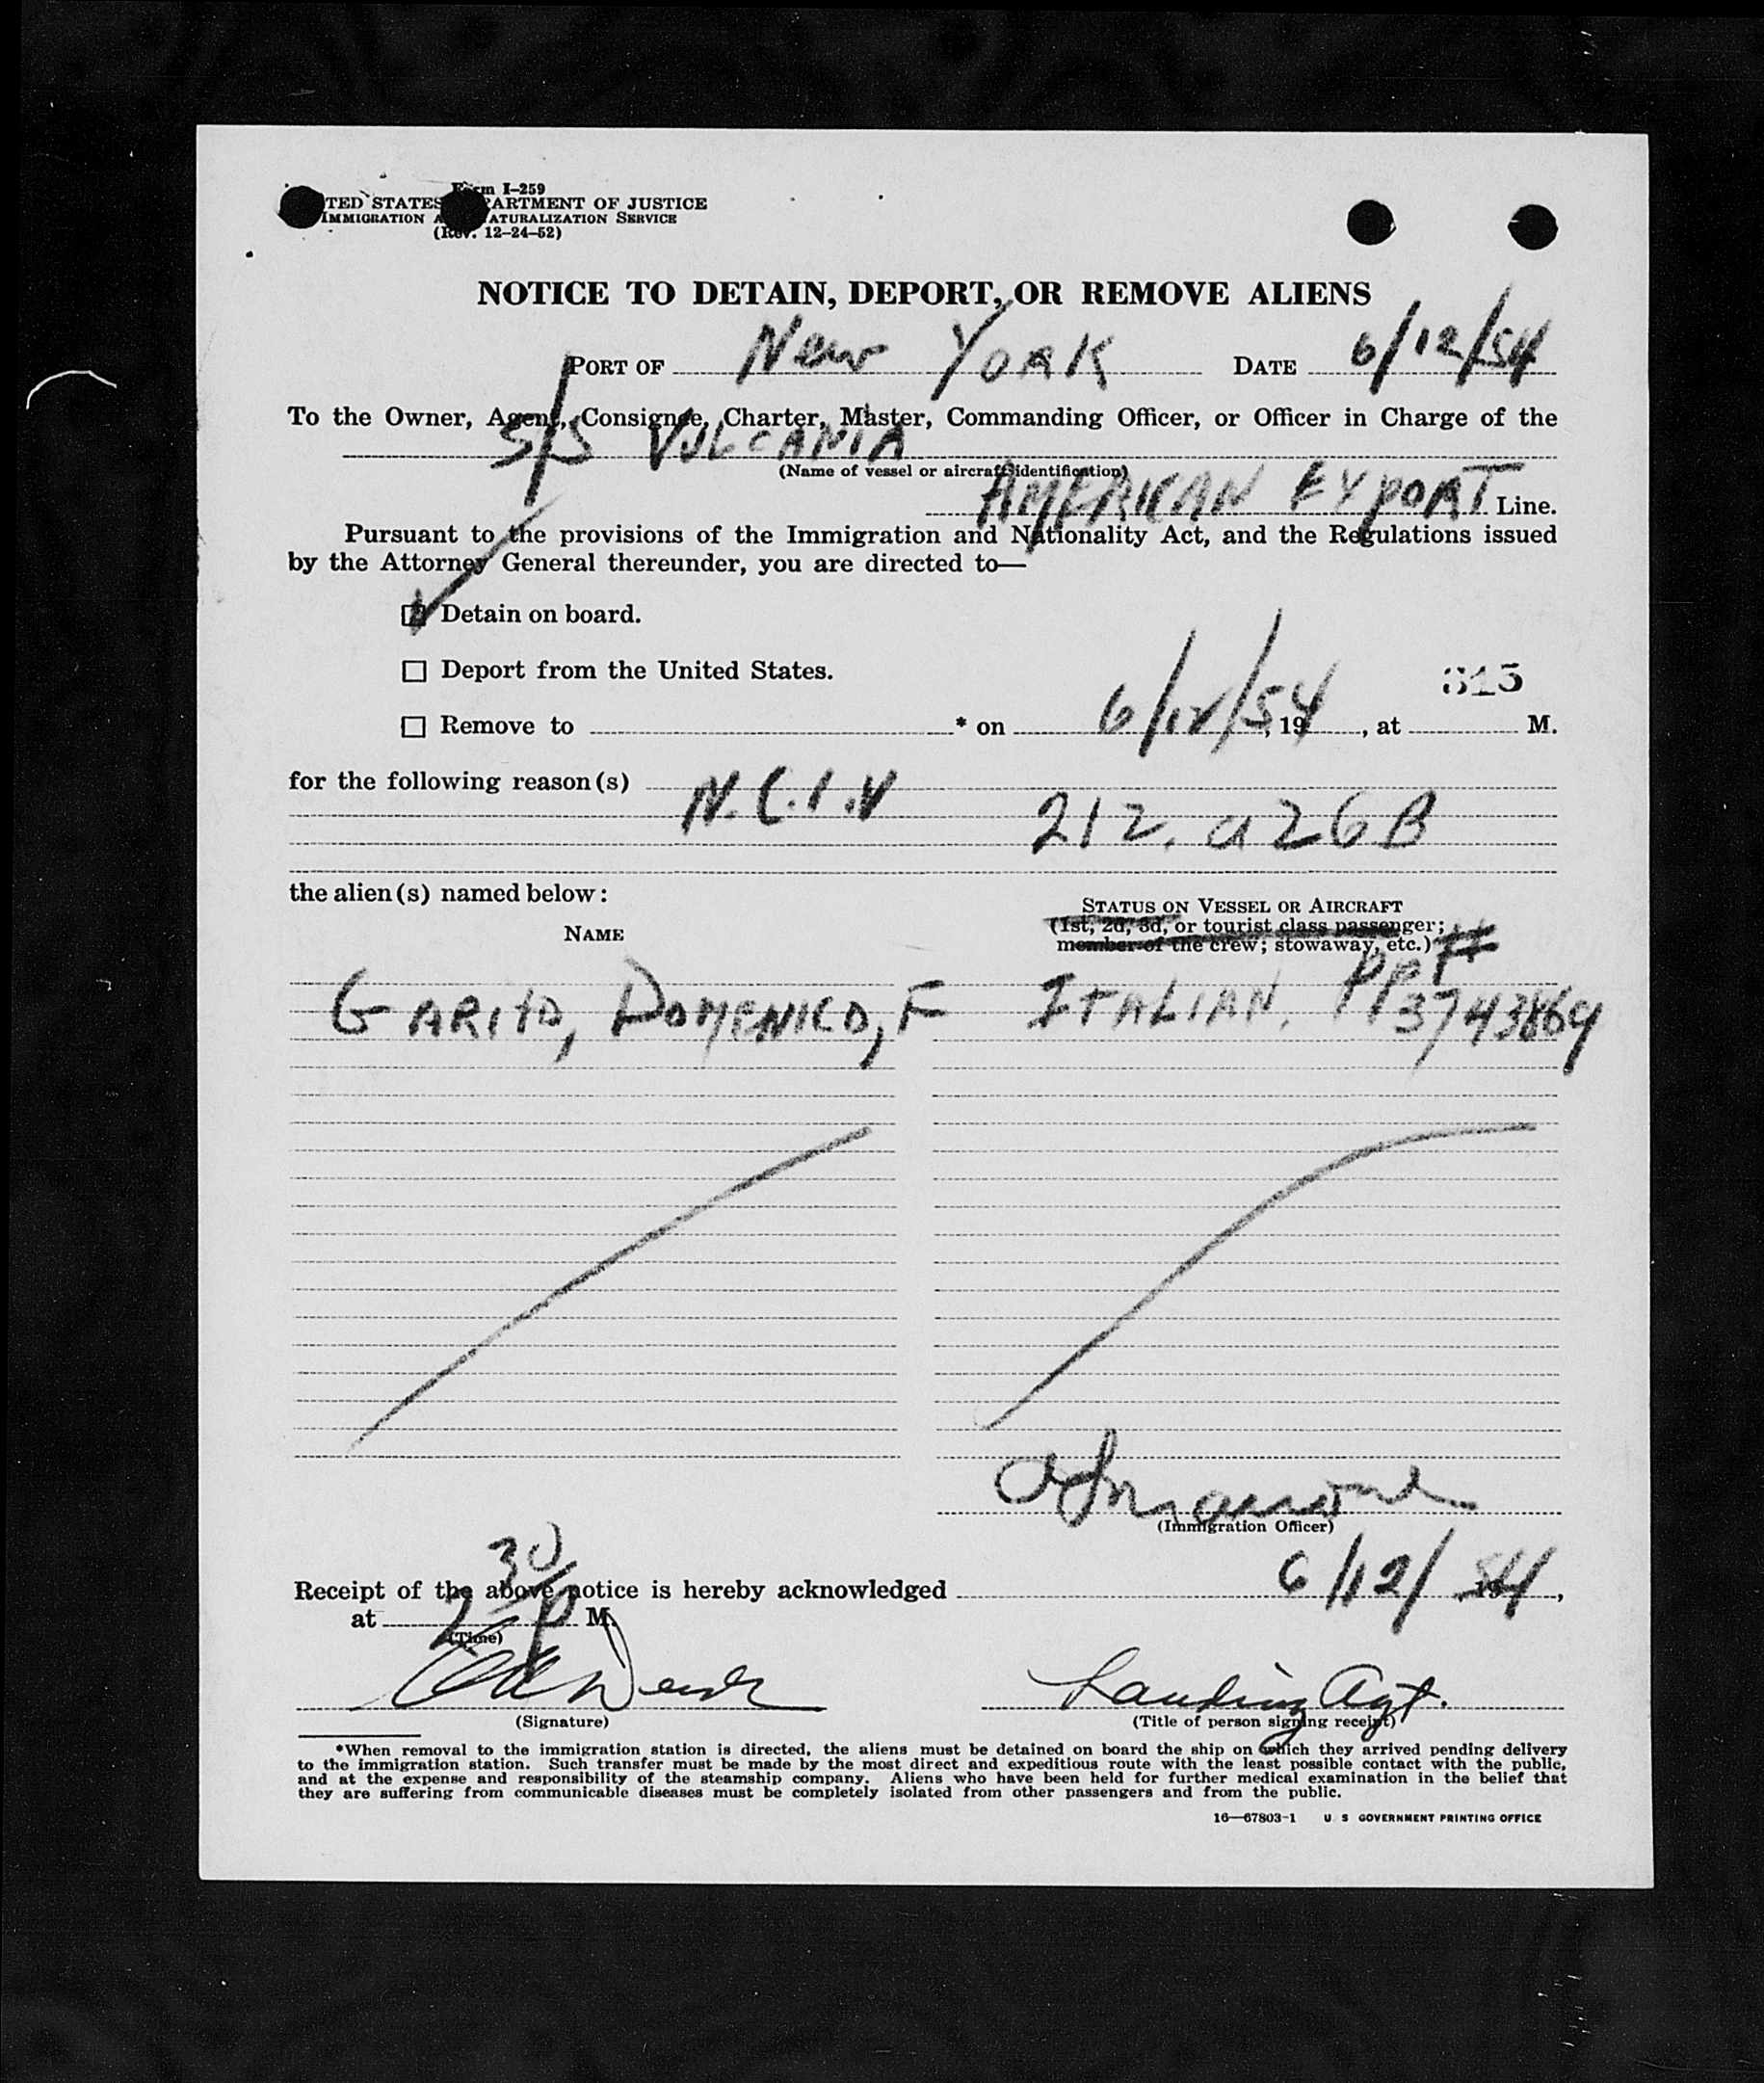 Form I-259
TED STATES ARTMENT OF JUSTICE
IMMIGRATION A ATURALIZATION SERVICE
(Rev. 12-24-52)
NOTICE TO DETAIN, DEPORT, OR REMOVE ALIENS
PORT OF New YORK DATE 6/12/54
To the Owner, Agent, Consignee, Charter, Master, Commanding Officer, or Officer in Charge of the
S/S VULCANIA
(Name of vessel or aircraft identification)
AMERICAN EXPORT Line.
Pursuant to the provisions of the Immigration and Nationality Act, and the Regulations issued
by the Attorney General thereunder, you are directed to—
Detain on board.
Deport from the United States.
315
Remove to * on 6/12/54, 19 , at M.
for the following reason(s) N.C.I.V 212. a 26 B
the alien(s) named below:
STATUS ON VESSEL OR AIRCRAFT
NAME
(1st, 2d, 3d, or tourist class passenger;
member of the crew; stowaway, etc.)
GARITO, DOMENICO, F ITALIAN. PP# 3743869
(Immigration Officer)
Receipt of the above notice is hereby acknowledged 6/12/54,
at 2 30 P M.
(Time)
Landing Agt.
(Signature) (Title of person signing receipt)
*When removal to the immigration station is directed, the aliens must be detained on board the ship on which they arrived pending delivery
to the immigration station. Such transfer must be made by the most direct and expeditious route with the least possible contact with the public,
and at the expense and responsibility of the steamship company. Aliens who have been held for further medical examination in the belief that
they are suffering from communicable diseases must be completely isolated from other passengers and from the public.
16—67803-1 U S GOVERNMENT PRINTING OFFICE